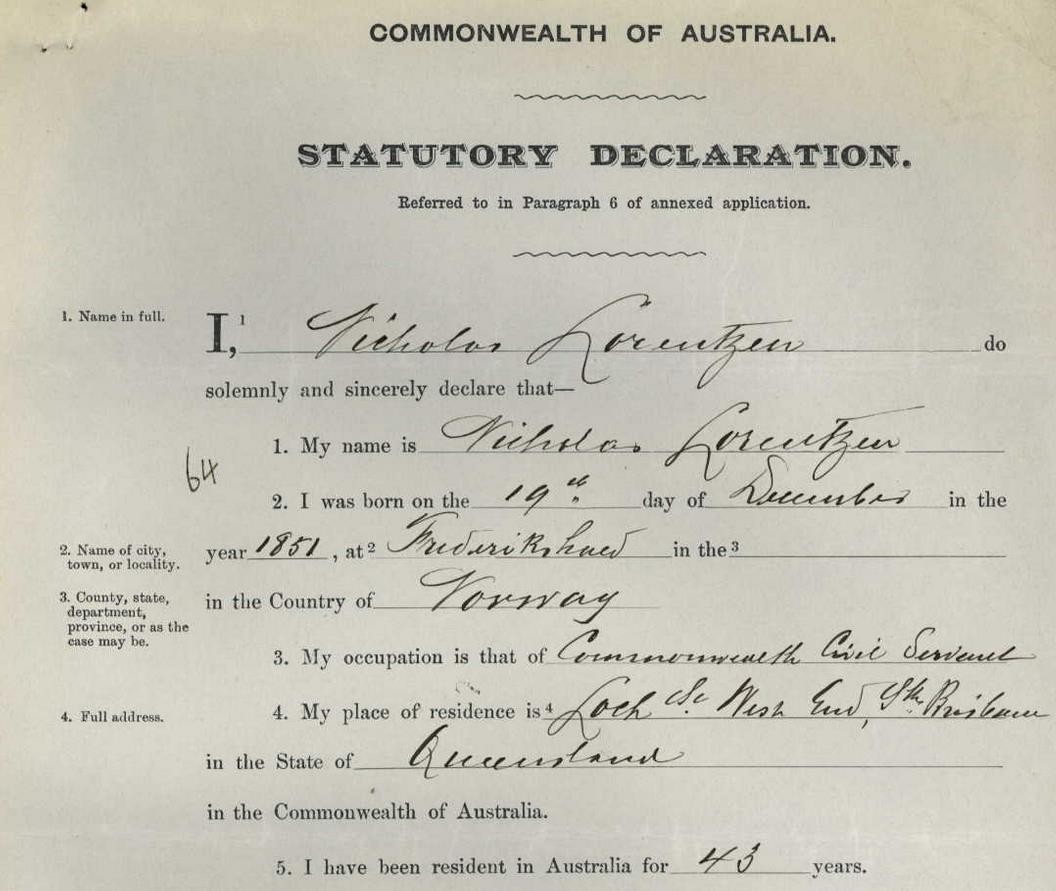 COMMONWEALTH OF AUSTRALIA.
STATUTORY DECLARATION.
Referred to in Paragraph 6 of annexed application.
1. Name in full.
I,¹ Nicholas Lorentzen do
solemnly and sincerely declare that—
1. My name is Nicholas Lorentzen
64
2. I was born on the 19th day of December in the
2. Name of city, town, or locality.
year 1851, at² Frederikshald in the³
3. County, state, department, province, or as the case may be.
in the Country of Norway
3. My occupation is that of Commonwealth Civil Servant
4. Full address.
4. My place of residence is⁴ Loch St. West End, Sth. Brisbane
in the State of Queensland
in the Commonwealth of Australia.
5. I have been resident in Australia for 43 years.